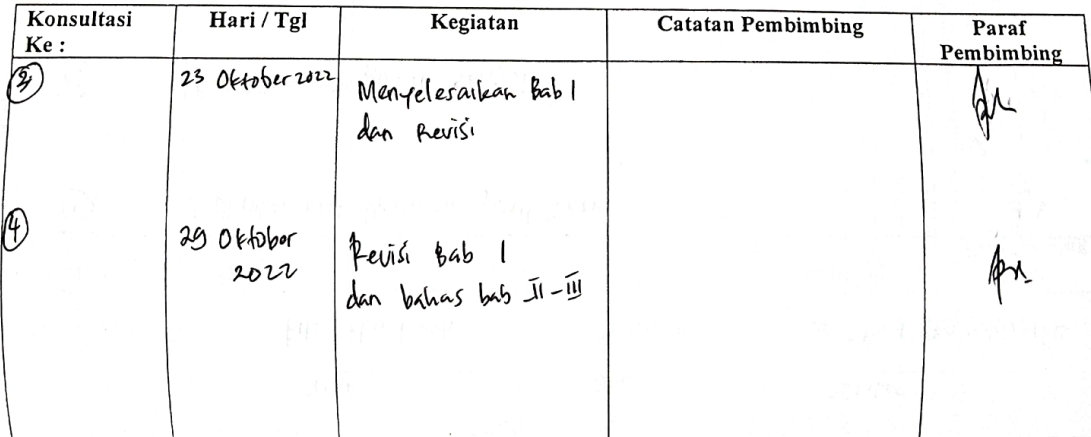 Konsultasi Ke :
Hari / Tgl
Kegiatan
Catatan Pembimbing
Paraf Pembimbing
3
23 Oktober 2022
Menyelesaikan Bab I
dan Revisi
4
29 Oktober
2022
Revisi Bab I
dan bahas bab II-III